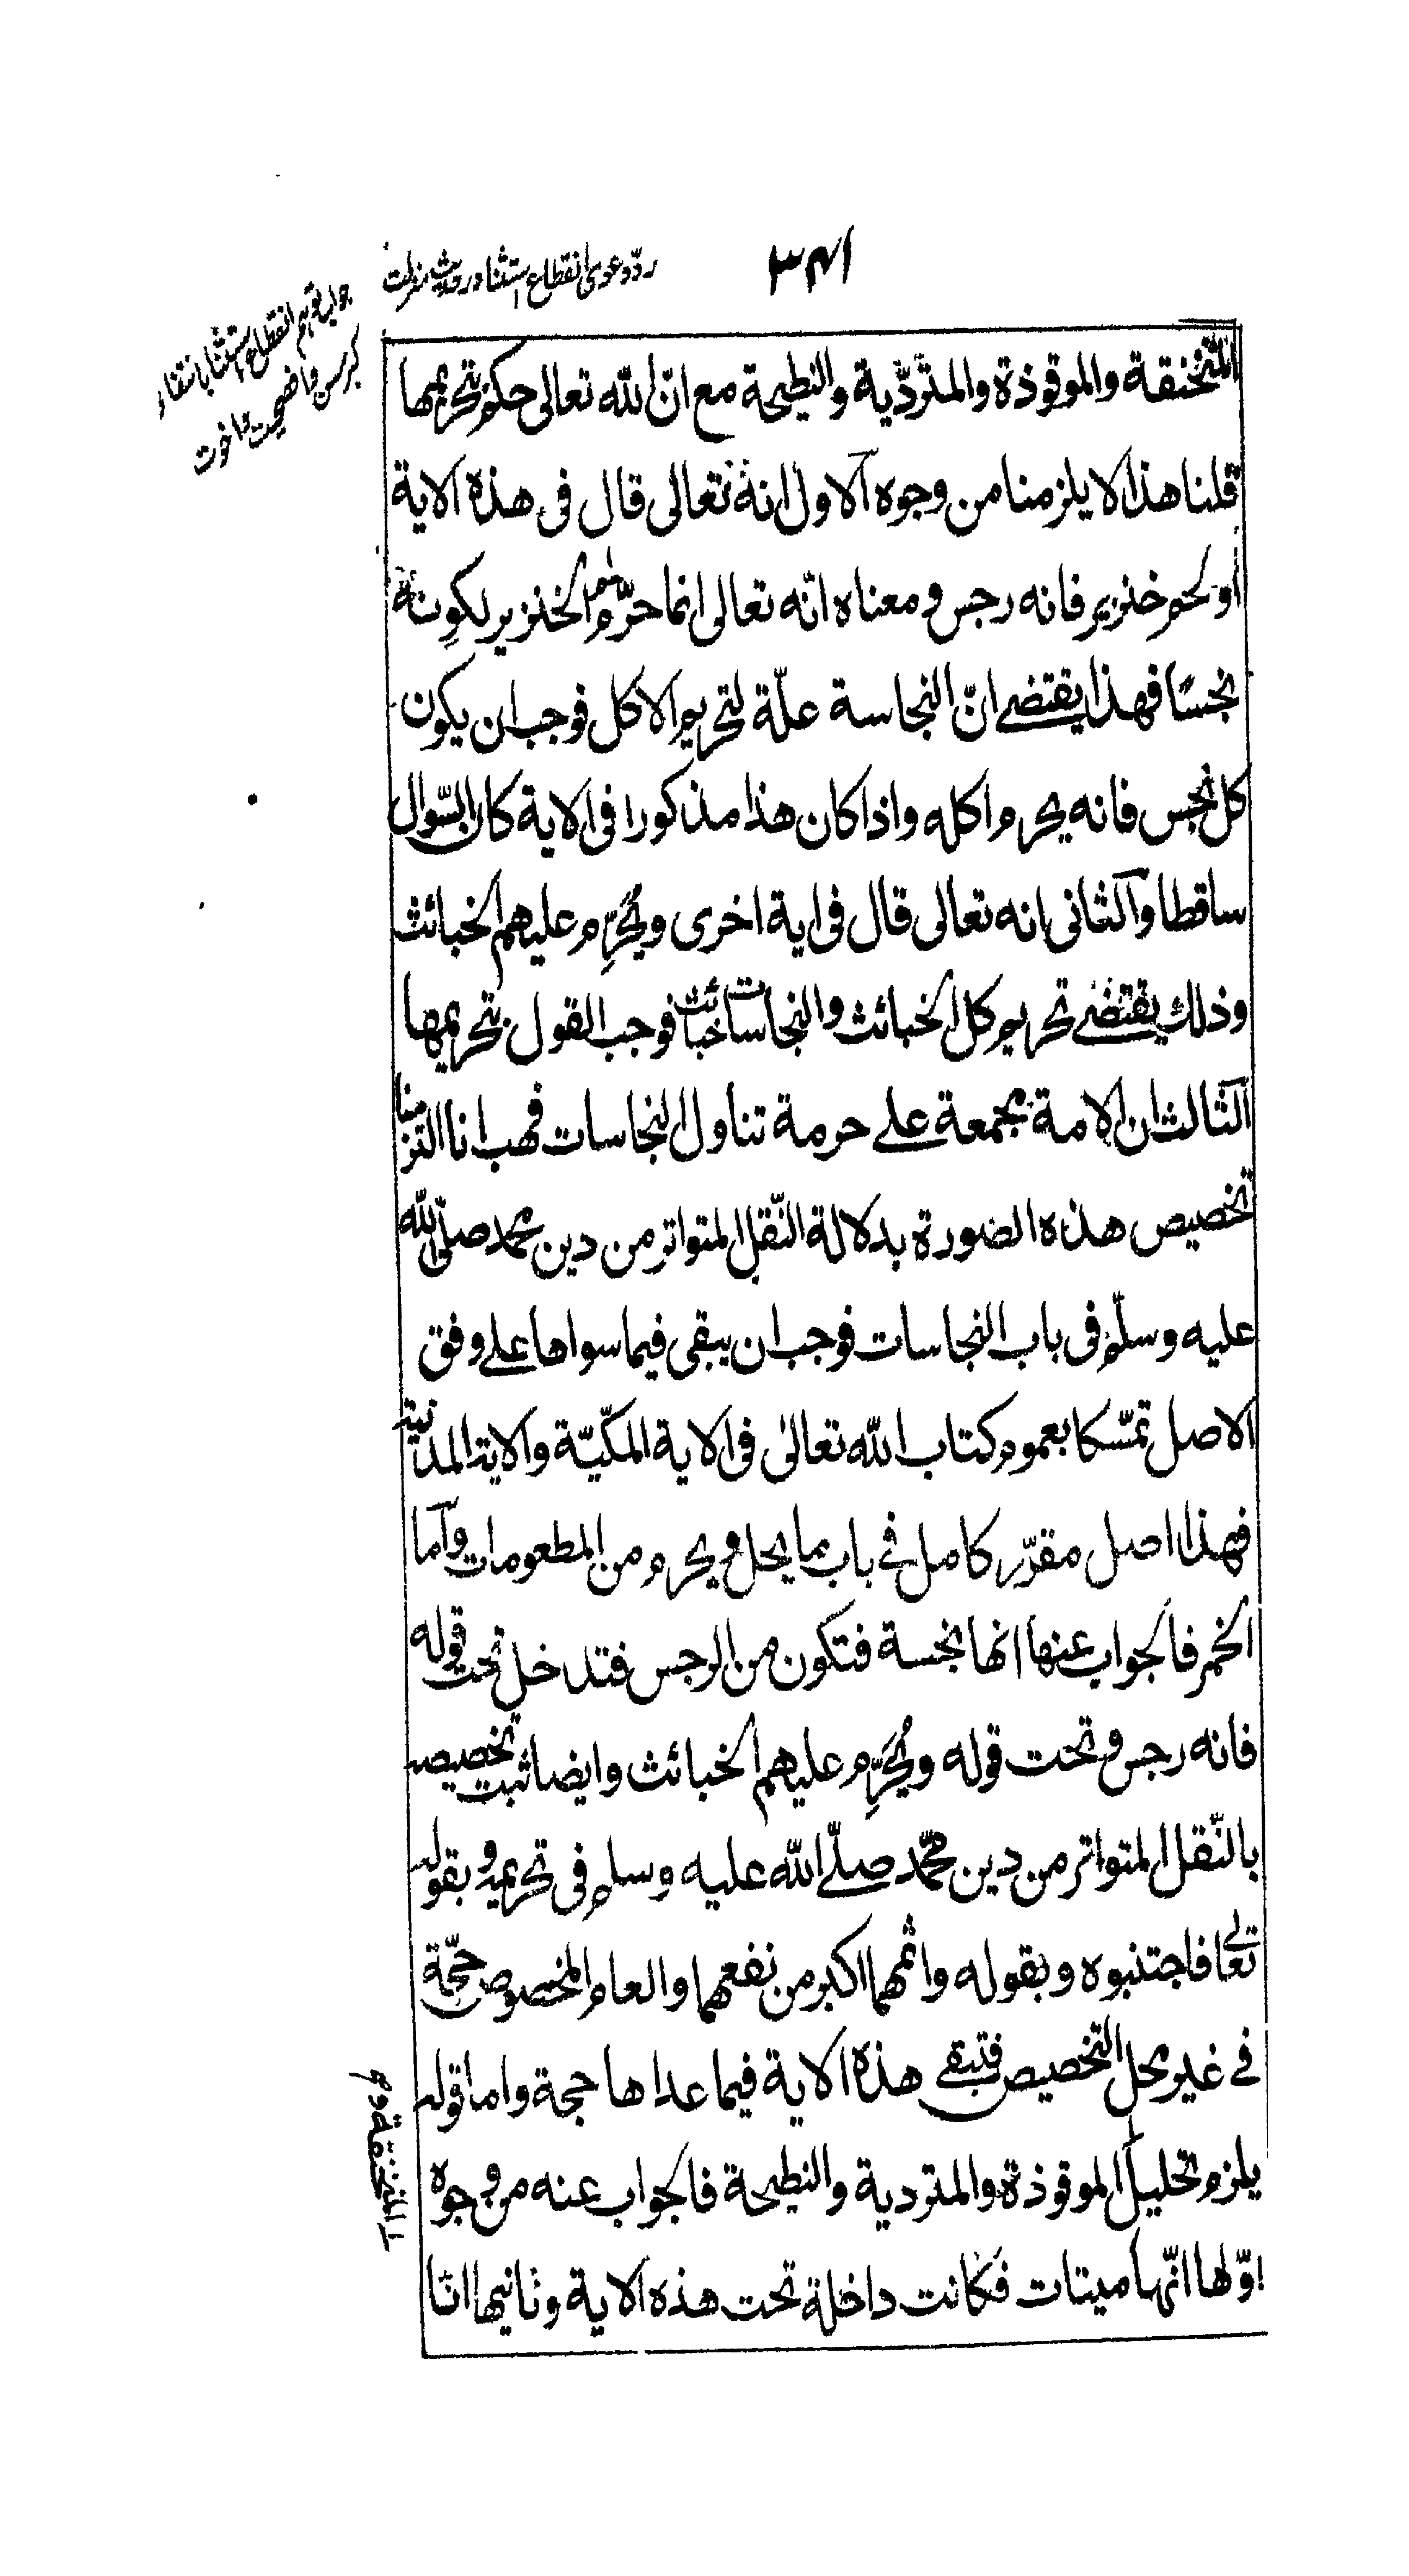 ۳۴۱
ردّ دعوی انقطاع استثنا در حدیث منزلت
جواب توهم انقطاع استثنا بانتفاء
المتخنقة والموقوذة والمتردّية والنطيحة مع انّ الله تعالى حكم بتحريمها
قلنا هذا لا يلزمنا من وجوه الاول انه تعالى قال فى هذه الاية
او لحم خنزير فانه رجس و معناه انّه تعالى انما حرّم لحم الخنزير لكونه
نجسًا فهذا يقتضے انّ النجاسة علّة لتحريم الاكل فوجب ان يكون
كل نجس فانه يحرم اكله واذا كان هذا مذكورا فى الاية كان السّوال
ساقطا والثانى انه تعالى قال فى اية اخرى ويُحرِّم عليهم الخبائث
وذلك يقتضے تحريم كل الخبائث والنجاسات خبائث فوجب القول بتحريمها
الثالث ان الامة مجمعة علے حرمة تناول النجاسات فهب انا التزمنا
تخصيص هذه الصورة بدلالة النّقل المتواتر من دين محمد صلّى الله
عليه وسلّم فى باب النجاسات فوجب ان يبقى فيما سواها علے وفق
الاصل تمسّكا بعموم كتاب الله تعالىٰ فى الاية المكيّة والاية المدنية
فهذا اصل مقرّر كامل فے باب ما يحل و يحرم من المطعومات واما
الخمر فالجواب عنها انها نجسة فتكون من الرجس فتدخل تحت قوله
فانه رجس و تحت قوله ويُحَرِّم عليهم الخبائث وايضا ثبت تخصيصه
بالنّقل المتواتر من دين محمّد صلّے الله عليه وسلم فى تحريمه و بقوله
تعالى فاجتنبوه و بقوله واثمهما اكبر من نفعهما والعام المخصوص حجّة
فے غير محل التخصيص فتبقے هذه الاية فيما عداها حجة واما قوله
يلزم تحليل الموقوذة والمتردية والنطيحة فالجواب عنه من وجوه
اوّلها انّها ميتات فكانت داخلة تحت هذه الاية وثانيها انا